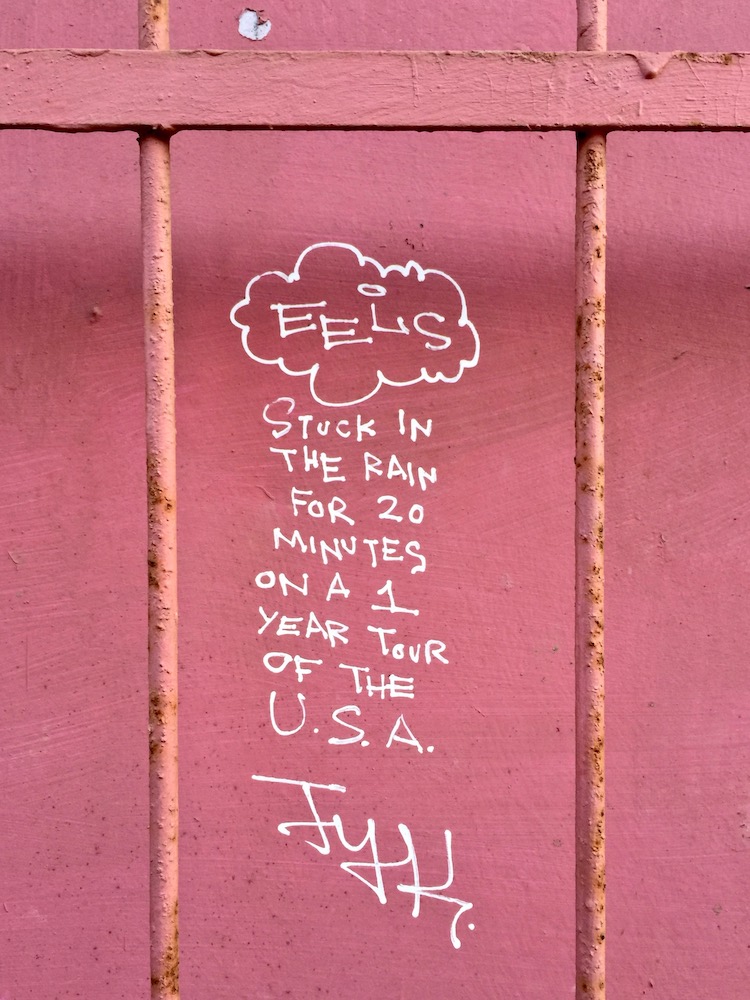 EELS
STUCK IN
THE RAIN
FOR 20
MINUTES
ON A 1
YEAR TOUR
OF THE
U.S.A.